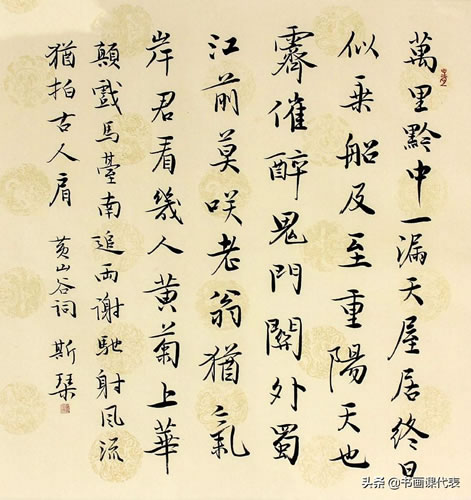 萬里黔中一漏天屋居終日
似乘船及至重陽天也
霽催醉鬼門關外蜀
江前莫咲老翁猶氣
岸君看幾人黃菊上華
顛戲馬臺南追兩謝馳射風流
猶拍古人肩 黃山谷詞 斯琹
头条 @书画课代表